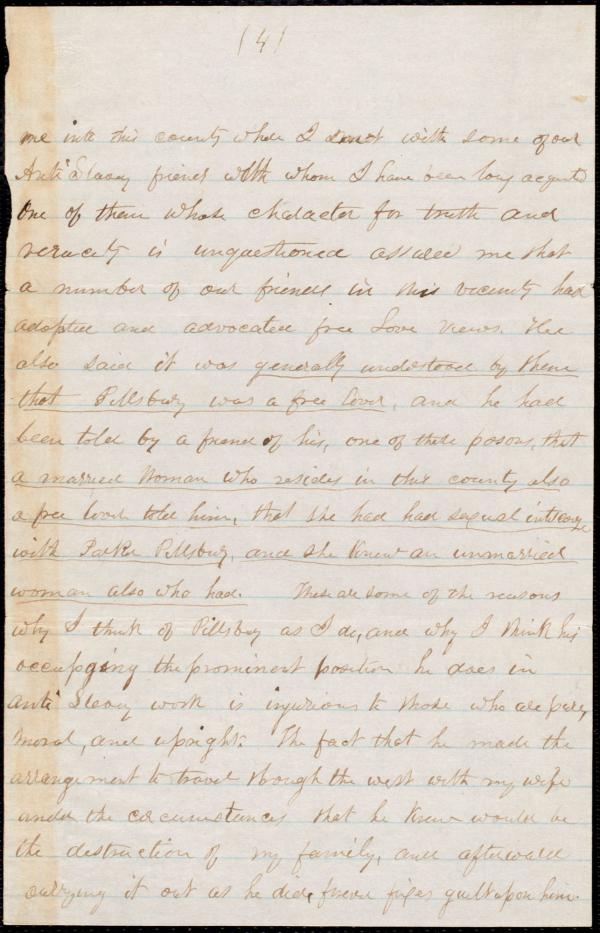 (4)
me into this county where I met with some of our
Anti Slavery friends with whom I have been long acquntd
One of them whose character for truth and
veracity is unquestioned assured me that
a number of our friends in this vicinity had
adopted and advocated free Love views. He
also said it was generally understood by them
that Pillsbury was a free lover, and he had
been told by a friend of his, one of these persons, that
a married Woman who resides in this county also
a free lover told him, that she had had sexual intercourse
with Parker Pillsbury, and she knew an unmarried
woman also who had. These are some of the reasons
why I think of Pillsbury as I do, and why I think his
occupying the prominent position he does in
Anti Slavery work is injurious to those who are pure,
Moral, and upright. The fact that he made the
arrangement to travel through the west with my wife
under the circumstances that he knew would be
the destruction of my family, and afterward
carrying it out as he did, forever fixes guilt upon him.